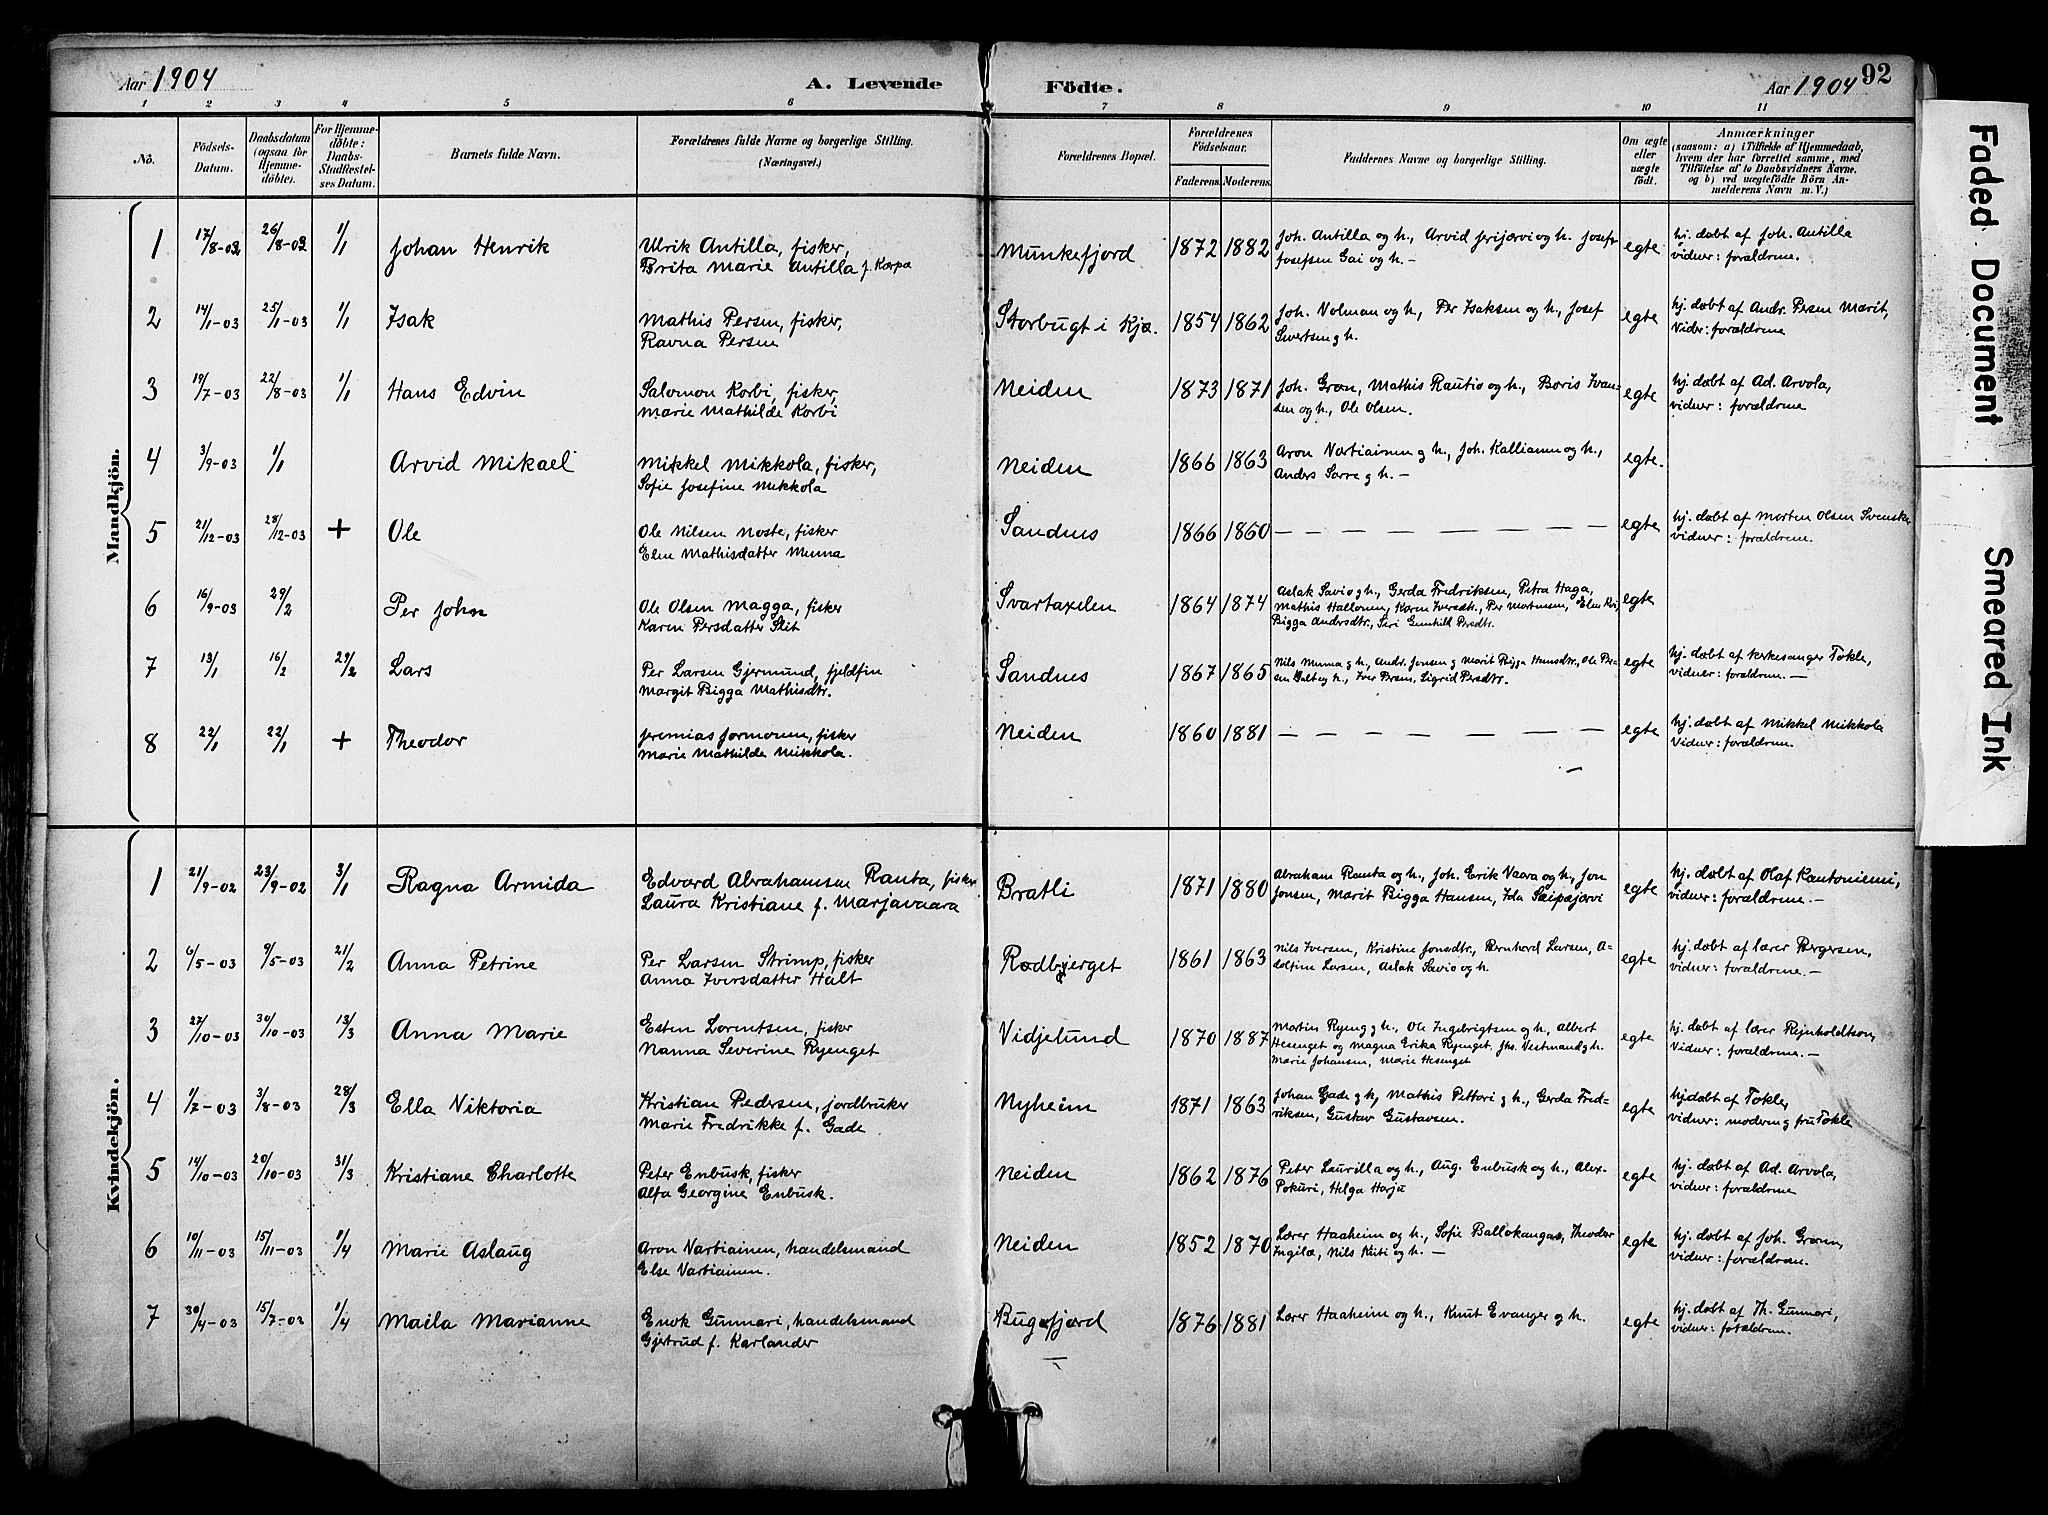 Aar 1904 A. Levende Födte. Aar 1904 92
1 2 3 4 5 6 7 8 9 10 11
No. Födsels-Datum. Daabsdatum (ogsaa for Hjemmedöbte). For Hjemmedöbte: Daabs-Stadfæstelses Datum. Barnets fulde Navn. Forældrenes fulde Navne og borgerlige Stilling. (Næringsvei.) Forældrenes Bopæl. Forældrenes Födselsaar. Faderens. Moderens. Faddernes Navne og borgerlige Stilling. Om ægte eller uægte født. Anmærkninger (saasom: a) i Tilfælde af Hjemmedaab, hvem der har forrettet samme, med Tilföielse af to Daabsvidners Navne. og b) ved uægtefödte Börn Anmelderens Navn m. V.)
Mandkjön.
1 17/8-02 26/8-02 1/1 Johan Henrik Ulrik Antilla, fisker, Munkefjord 1872 1882 Joh. Antilla og h., Arvid Prijærvi og h. Josef egte hj. døbt af Joh. Antilla
Brita Marie Antilla f. Karpa Josefsen Gai og h. — vidner: forældrene.
2 14/1-03 25/1-03 1/1 Isak Mathis Persen, fisker, Storbugt i Kjø. 1854 1862 Joh. Nolman og h., Per Isaksen og h., Josef egte hj. døbt af Andr. Persen Marit,
Ravna Persen Sivertsen g h. Vidner: forældrene
3 19/7-03 22/8-03 1/1 Hans Edvin Salomon Korbi, fisker, Neiden 1873 1871 Joh. Grøn, Mathis Rautio og h., Boris Ivan- egte hj. døbt af Ad. Arvola,
Marie Mathilde Korbi sen og h., Ole Olsen. vidner: forældrene
4 3/9-03 1/1 Arvid Mikael Mikkel Mikkola, fisker, Neiden 1866 1863 Aron Vartiainen g h., Joh. Kallianen og h., egte.
Sofie Josefine Mikkola Anders Sarre g h. —
5 21/12-03 28/12-03 + Ole Ole Nilsen Noste, fisker Sandnes 1866 1860 — — — — — — — — egte hj. døbt af Morten Olsen Svenske
Elen Mathisdatter Munna vidner: forældrene.
6 16/9-03 29/2 Per John Ole Olsen Magga, fisker Svartaxelen 1864 1874 Aslak Savio g h., Gerda Fredriksen, Petra Haga, egte
Karen Persdatter Slit Mathis Hallonen, Karen Iversdtr., Per Mortensen,
Bigga Andersdtr., Siri Gunhild Persdtr.
7 13/1 16/2 29/2 Lars Per Larsen Gjermund, fjeldfin Sandnes 1867 1865 Nils Munna g h., Andr. Jonsen g Marit Bigga Hansdtr., Ole Per- egte hj. døbt af kirkesanger Tokle,
Margit Bigga Mathisdtr. sen Halt og h., Iver Persen, Sigrid Persdtr. vidner: forældrene. —
8 22/1 22/1 + Theodor Jeremias Jormonen, fisker Neiden 1860 1881 — — — — — — — — egte hj. døbt af Mikkel Mikkola
Marie Mathilde Mikkola. Vidner: forældrene.
Kvindekjön.
1 21/9-02 23/9-02 3/1 Ragna Armida Edvard Abrahamsen Ranta, fisker Bratli 1871 1880 Abraham Ranta og h., Joh. Erik Vaara og h., Jon egte hj. døbt af Olaf Kantoniemi,
Laura Kristiane f. Marjavaara Jonsen, Marit Bigga Hansen, Ida Seipæjærvi vidner: forældrene. —
2 6/5-03 9/5-03 21/2 Anna Petrine Per Larsen Strimp, fisker Rødbjerget 1861 1863 Nils Iversen, Kristine Jonsdtr., Bernhard Larsen, A- egte hj. døbt af lærer Bergersen,
Anna Iversdatter Halt dolfine Larsen, Aslak Savio og h. vidner: forældrene. —
3 27/10-03 30/10-03 13/3 Anna Marie Esten Lorentsen, fisker Vidjelund 1870 1887 Martin Ryeng g h., Ole Ingebrigtsen og h., Albert egte hj. døbt af lærer Rejnholdtson,
Nanna Severine Ryenget Hesenget og Magna Erika Ryenget, Jhs. Vestmand g h. Vidner: forældrene. —
Marie Johansen, Marie Hesenget
4 1/7-03 3/8-03 28/3 Ella Viktoria Kristian Pedersen, jordbruker Nyheim 1871 1863 Johan Gade g h, Mathis Pettari g h., Gerda Fred- egte hj døbt af Tokle,
Marie Fredrikke f. Gade riksen, Gustav Gustavsen. vidner: moderen g fru Tokle
5 14/10-03 20/10-03 31/3 Kristiane Charlotte Peter Enbusk, fisker Neiden 1862 1876 Peter Laurilla og h., Aug. Enbusk og h., Alex- egte hj. døbt af Ad. Arvola,
Alfa Georgine Enbusk. Pokuri, Helga Harju vidner: forældrene
6 10/11-03 15/11-03 1/4 Marie Aslaug Aron Vartiainen, handelsmand Neiden 1852 1870 Lærer Haaheim og h., Sofie Ballokangas, Theodor egte hj. døbt af Joh. Grønn,
Else Vartiainen. Ingilæ, Nils Kiti og h. — vidner: forældrene.
7 30/4-03 15/7-03 1/4 Maila Marianne Enok Gunnari, handelsmand Bugøfjord 1876 1881 Lærer Haaheim og h., Knut Evanger g h. egte hj. døbt af Th. Gunnari,
Gjertrud f. Karlander vidner: forældrene.
Faded Document
Smeared Ink